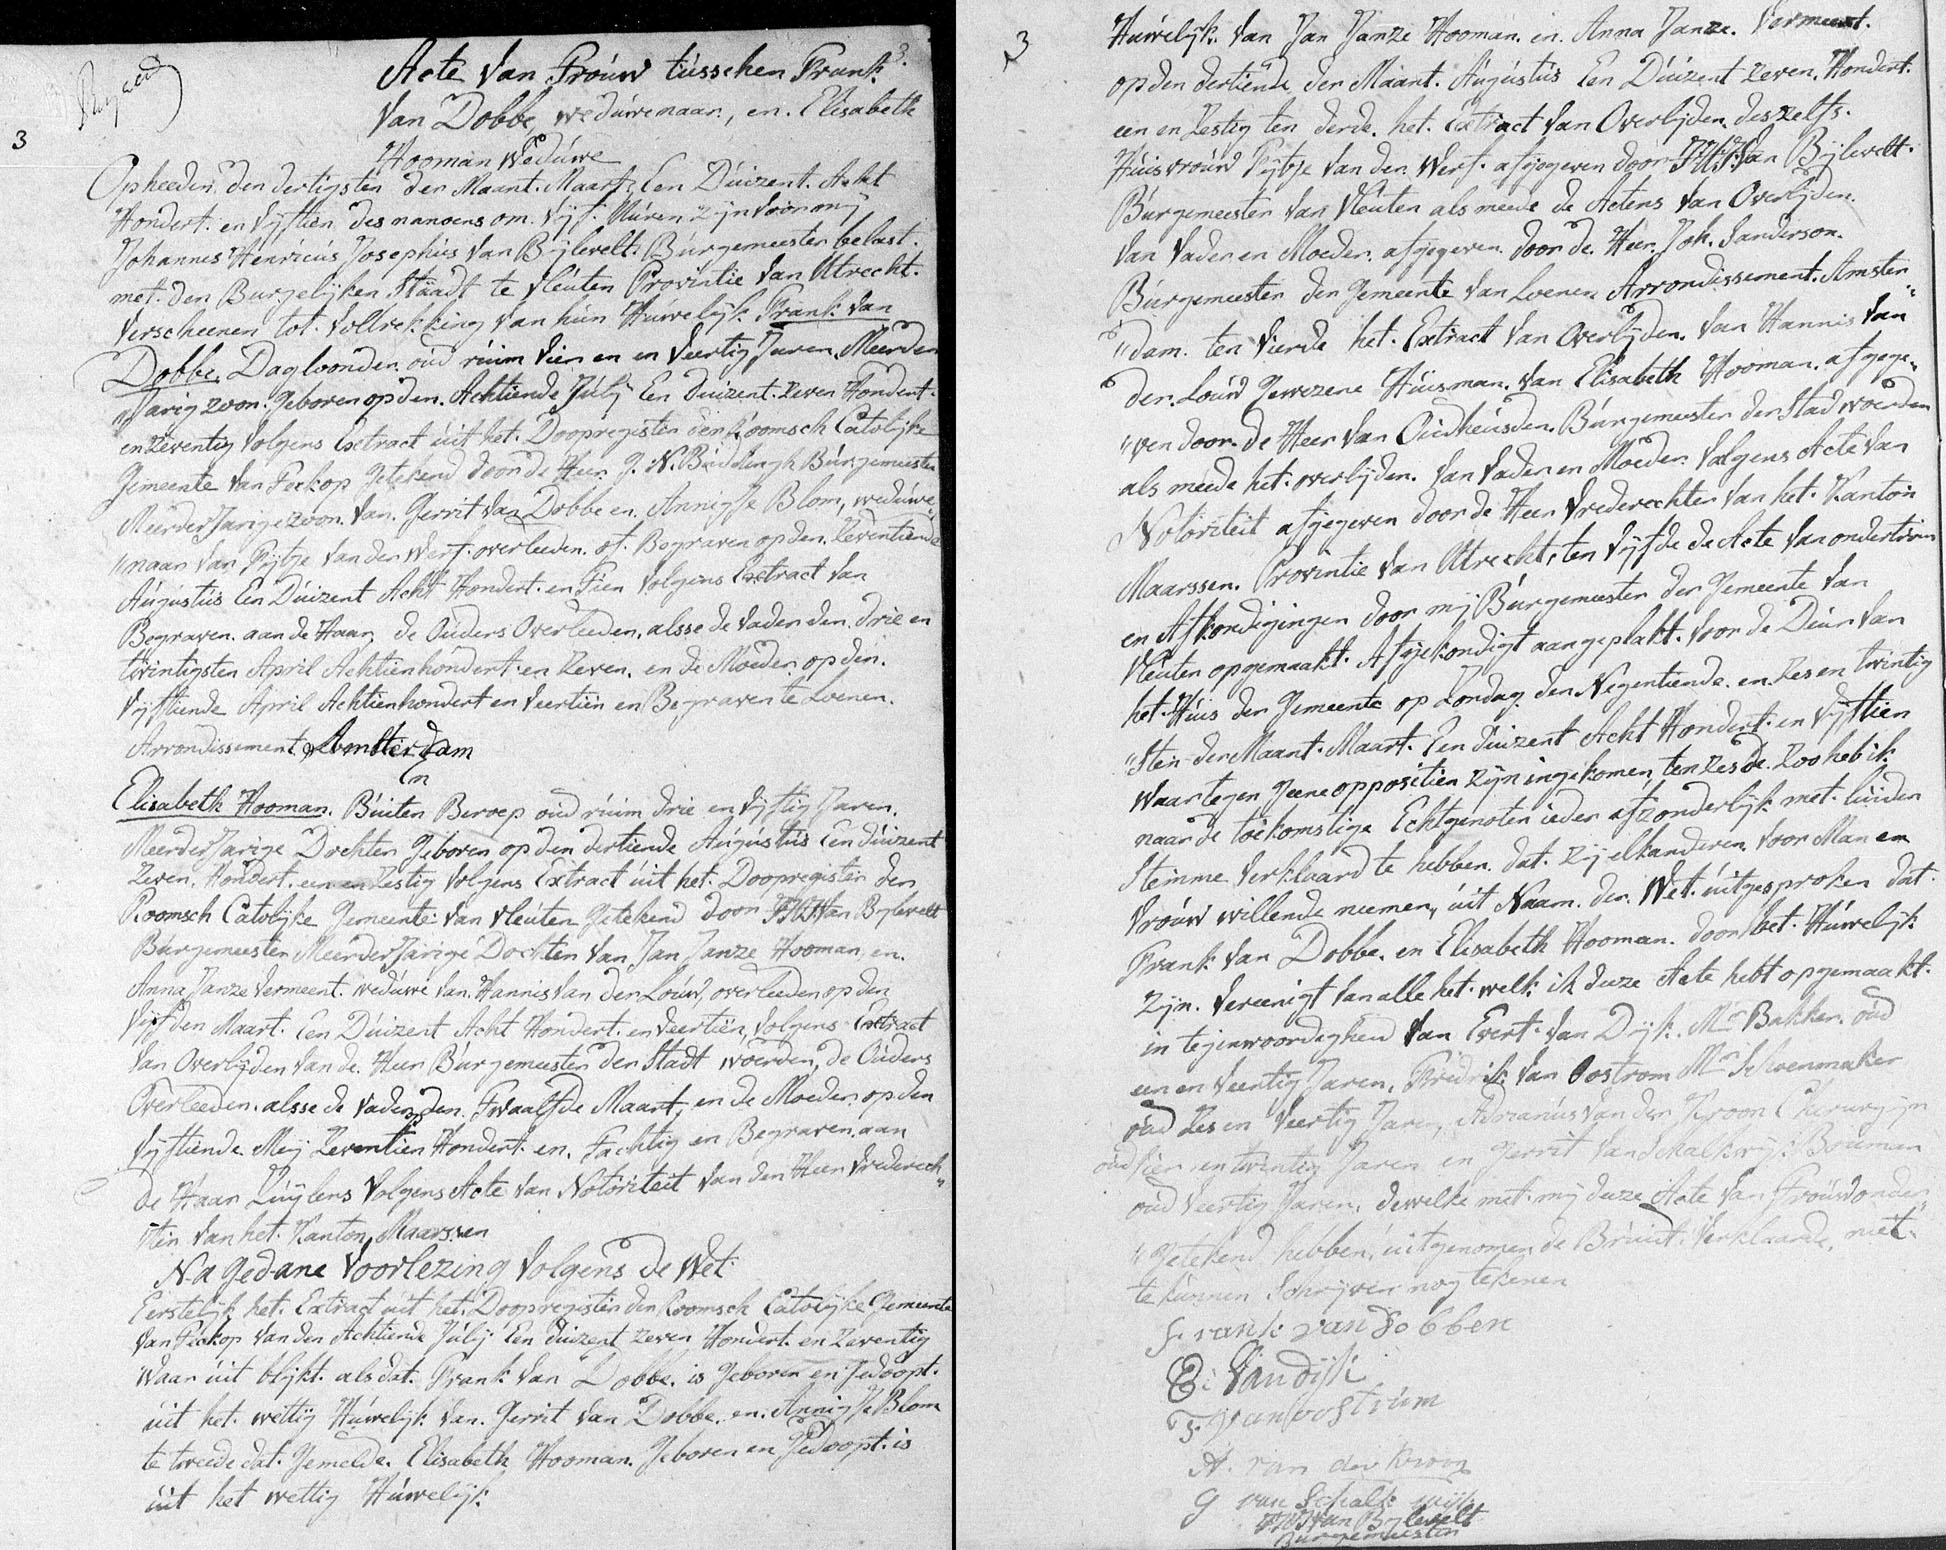 3.
3
Acte Van Troúw tússchen Frank
Van Dobbe, wedúwenaar, en. Elisabeth
Hooman Wedúwe
Op heeden den dertigsten der Maant. Maart, Een Dúizent. Acht
Hondert. en Vyftien des namoens om. Vyf. Uúren Zyn Voor my
Johannes Henricús Josephús Van Bijlevelt. Búrgemeester belast.
met. den Burgelijken Staadt te Vleúten Provintie Van Utrecht.
Verscheenen tot. Voltrekking van hún Húwelijk Frank Van
Dobbe. Dagloonder oúd rúim Vier en en Veertig Jaren. Meerder
"Jarig zoon. Geboren op den. Achtiende Júlij Een dúizent. Zeven Hondert.
en Zeventig Volgens Extract úit het. Doopregister der Roomsch Catolijke
Gemeente Van Teckop Getekend door de Heer. G. N. Búddingh Búrgemeester
Meerder Jarige zoon. Van. Gerrit Van Dobbe en. Annigje Blom, wedúwe
"naar Van Pijtje Van der Werf. overleeden. of. Begraven op den. Zeventiende
Aúgústús Een Dúizent Acht Hondert. en Tien Volgens Extract Van
Begraven. aan de Haar, de Oúders Overleeden. alsse de Vader den. drie en
twintigsten April Achtienhondert en Zeven. en de Moeder. op den.
Vyftiende April Achtienhondert en Veertiën en Begraven te Loenen.
Arrondissement Amsterdam
En
Elisabeth Hooman. Búiten Beroep oúd rúim drie en Vyftig Jaren.
Meerder Jarige Dochter Geboren op den dertiende Aúgústús Een dúizent
Zeven. Hondert. een en Zestig Volgens Extract úit het. Doopregister der
Roomsch Catolijke Gemeente van Vleúten Getekend door JHJ Van Bylevelt
Búrgemeester Meerder Jarige Dochter Van Jan Janze Hooman, en.
Anna Janze Vermeent. wedúwe Van. Hannis Van der Loúw, overleeden op den
Vyfden Maart. Een Dúizent Acht Hondert. en Veertiën, Volgens Extract
Van Overlijden Van de. Heer Búrgemeester der Stadt Woerden, de Oúders
Overleeden. alsse de Vader den. Twaalfde Maart, en de Moeder. op den
Vyftiende Meij Zeventien Hondert. en. Tachtig en Begraven. aan
de Haar Zúylens Volgens Acte Van Notoriteit van den Heer Vrederech
"ter Van het. Kanton Maarssen
Na gedane Voorlezing Volgens de Wet.
Eerstelijk het. Extract uit het. Doopregister der Roomsch Catolijke Gemeente
Van Teckop Van den Achtiende Júlij Een dúizent Zeven Hondert. en Zeventig
Waar úit blijkt. als dat. Frank Van Dobbe. is Geboren en Gedoopt.
úit het. wettig Húwelijk Van. Gerrit Van Dobbe. en. Annigje Blom
te tweede dat. Gemelde. Elisabeth Hooman. Geboren en Gedoopt. is
úit het wettig Húwelijk
3
Húwelijk. Van Jan Janze Hooman. en. Anna Janze. Vermeent.
op den dertiende der Maant. Aúgústús Een Dúizent Zeven. Hondert.
een en Zestig ten derde. het. Extract Van Overlijden. deszelfs.
Húisvroúw Pijtje Van der. Werf. afgegeven door JHJ Van Bijlevelt.
Búrgemeester Van Vleúten als meede de Actens Van Overlijden.
Van Vader en Moeder. afgegeven. door de. Heer. Joh. Sanderson.
Búrgemeester der Gemeente Van Loenen Arrondissement. Amster
"dam. ten Vierde het. Extract Van Overlijden. Van Hannis Van
der. Loúw Gewezene Húisman. Van Elisabeth Hooman. afgege
"ven door. de Heer Van Oúdheúsden. Búrgemeester der Stad Woerden
als meede het. overlijden. Van Vader en Moeder. Volgens Acte Van
Notoriteit afgegeven door de Heer Vrederechter Van het. Kanton
Maarssen. Provintie Van Utrecht, ten Vyfde de Acte Van ondertroúw
en Afkondigingen door mij Búrgemeester der Gemeente Van
Vleúten opgemaakt. Afgekondigt aangeplakt. Voor de Dúúr Van
het. Húis der Gemeente op Zondag den Negentiende. en Zes en twintig
"sten der Maant. Maart. Een dúizent Acht Hondert. en Vyftien
Waartegen Geene oppositien Zyn ingekomen, ten Zesde. Zoo heb ik
naar de toekomstige Echtgenoten ieder afzonderlijk met. lúider
Stemme Verklaard te hebben. dat. Zy elkanderen. Voor Man en
Vroúw willende neemen, úit Naam. der Wet. úitgesproken dat.
Frank Van Dobbe. en Elisabeth Hooman. door het. Húwelijk
Zijn. Vereenigt Van alle het. welk ik deeze Acte hebt opgemaakt.
in tegenwoordigheid Van Evert. Van Dijk. Mr Bakker. oúd
een en Veertig Jaren. Fredrik Van Oostrom Mr Schoenmaker
oúd Zes en Veertig Jaren, Adrianús Van der Kroon Cherurgijn
oúd Vier en twintig Jaren en Gerrit Van Schalkwyk Boúman
oúd Veertig Jaren, dewelke met. mij deeze Acte Van Troúw onder
"getekend hebben. úitgenomen de Brúid. Verklaarde, niet.
te kúnnen Schrijven nog tekenen
frank van Dobben
E. Van dijk
F. Van oostrúm
A. van der kroon
G van Schalk wijk
JHJ Van Bylevelt
Búrgemeester